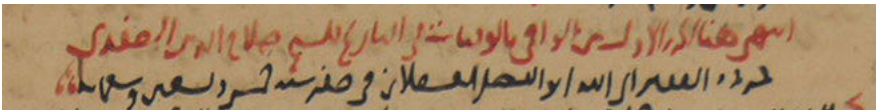 انتهى هنا الجزء الاول من الوافي بالوفيات في التاريخ للشيخ صلاح الدين الصفدي
الفقير الى الله ابو الفضل العسقلاني في صفر سنة خمس وتسعين وسبعمائة